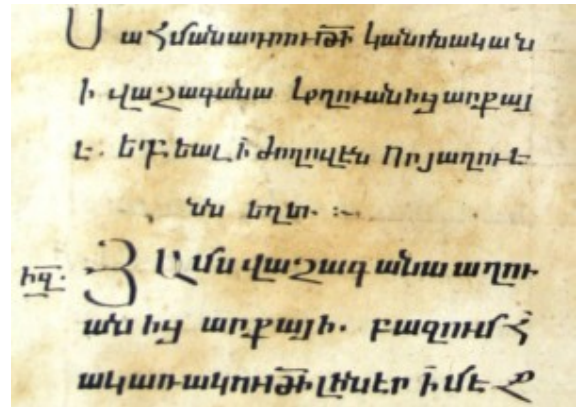 Սահմանադրութի կանոնական
ի վաչագանա աղուանից արքայ
է. եդեալ ի ժողովէն Որ յաղուէ
նն եղև. :~
ԻԳ. ՅԱմս վաչագանա աղու
անից արքայի. բազում հ
ակառակութի լինէր ի մէջ